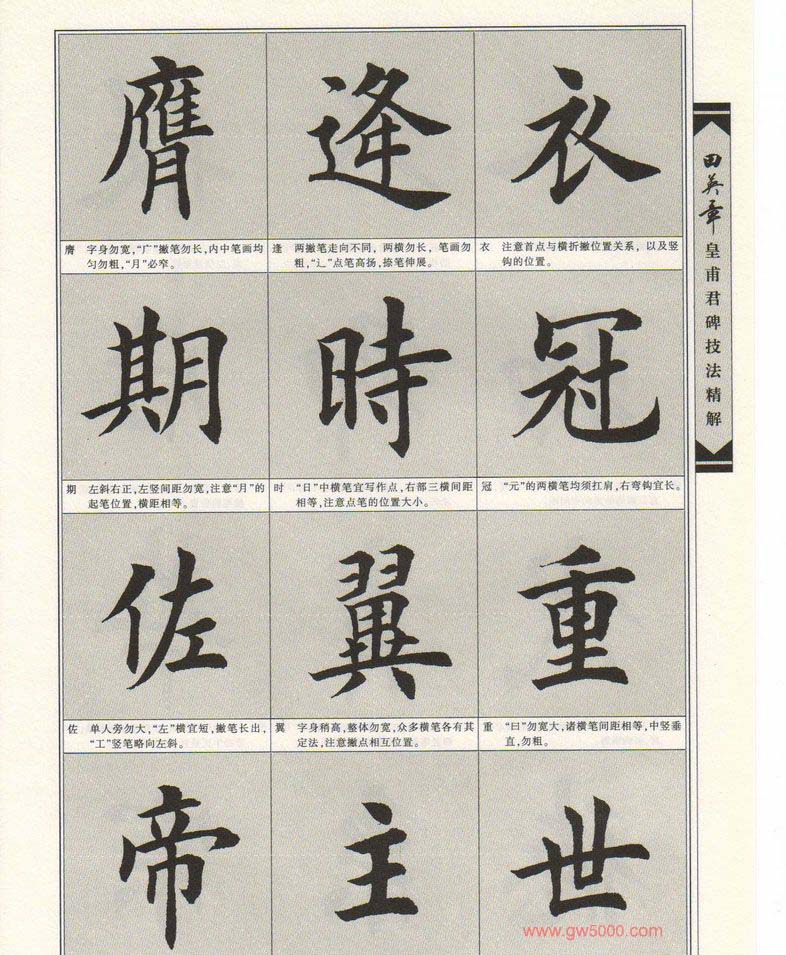 田英章
皇甫君碑技法精解
衣
衣 注意首点与横折撇位置关系，以及竖
钩的位置。
冠
冠 “元”的两横笔均须扛肩，右弯钩宜长。
重
重 “曰”勿宽大，诸横笔间距相等，中竖垂
直，勿粗。
世
逢
逢 两撇笔走向不同，两横勿长，笔画勿
粗，“辶”点笔高扬，捺笔伸展。
時
时 “日”中横笔宜写作点，右部三横间距
相等，注意点笔的位置大小。
翼
翼 字身稍高，整体勿宽，众多横笔各有其
定法，注意撇点相互位置。
主
膺
膺 字身勿宽，“广”撇笔勿长，内中笔画均
匀勿粗，“月”必窄。
期
期 左斜右正，左竖间距勿宽，注意“月”的
起笔位置，横距相等。
佐
佐 单人旁勿大，“左”横宜短，撇笔长出，
“工”竖笔略向左斜。
帝
www.gw5000.com